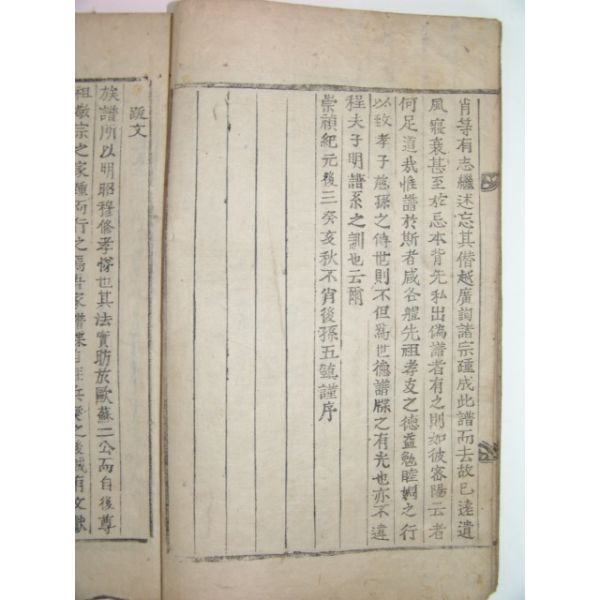 肖等有志繼述忘其僭越廣詢諸宗踵成此譜而去故已遠遺
風寢衰甚至於忌本背先私出僞譜者有之則如彼審陽云者
何足道哉惟譜於斯者咸各軆先祖孝友之德益勉睦婣之行
以致孝子慈孫之傳世則不但爲世德譜牒之有光也亦不違
程夫子明譜系之訓也云爾
崇禎紀元後三癸亥秋不肖後孫五鎭謹序
跋文
族譜所以明昭穆修孝悌也其法實昉於歐蘇二公而自後尊
祖敬宗之家踵而行之爲吾家譜牒自經兵燹之後咸有文獻